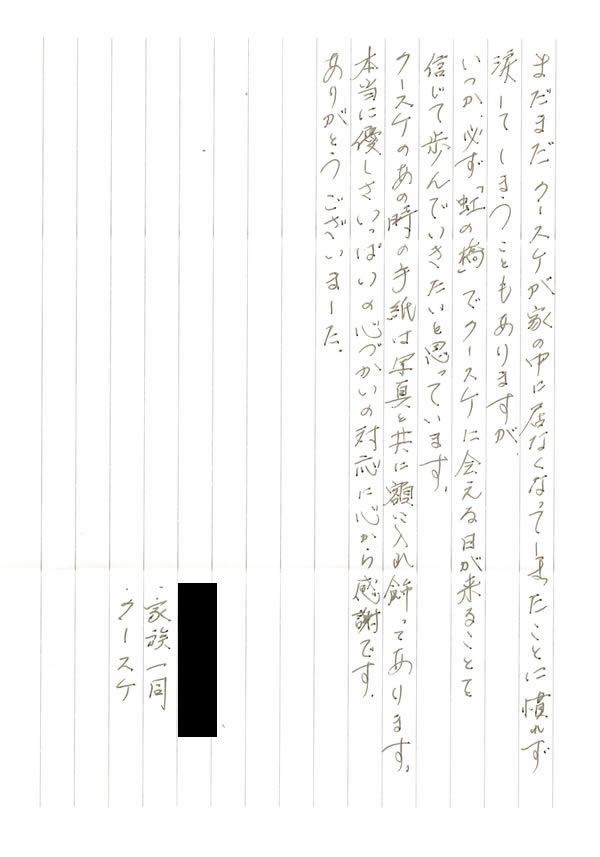 まだまだクースケが家の中に居なくなってしまったことに慣れず
涙してしまうこともありますが、
いつか、必ず「虹の橋」でクースケに会える日が来ることを
信じて歩んでいきたいと思っています。
クースケのあの時の手紙は写真と共に額に入れ飾ってあります。
本当に優しさいっぱいの心づかいの対応に心から感謝です。
ありがとうございました。
・家族一同
・クースケ